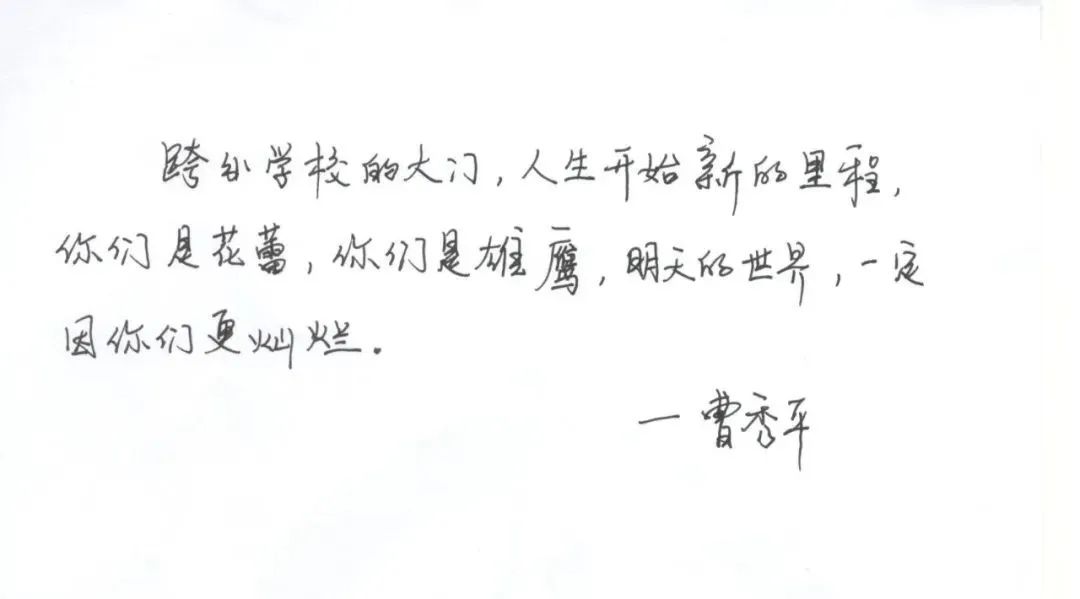 跨出学校的大门，人生开始新的里程，
你们是花蕾，你们是雄鹰，明天的世界，一定
因你们更灿烂.
一曹秀平